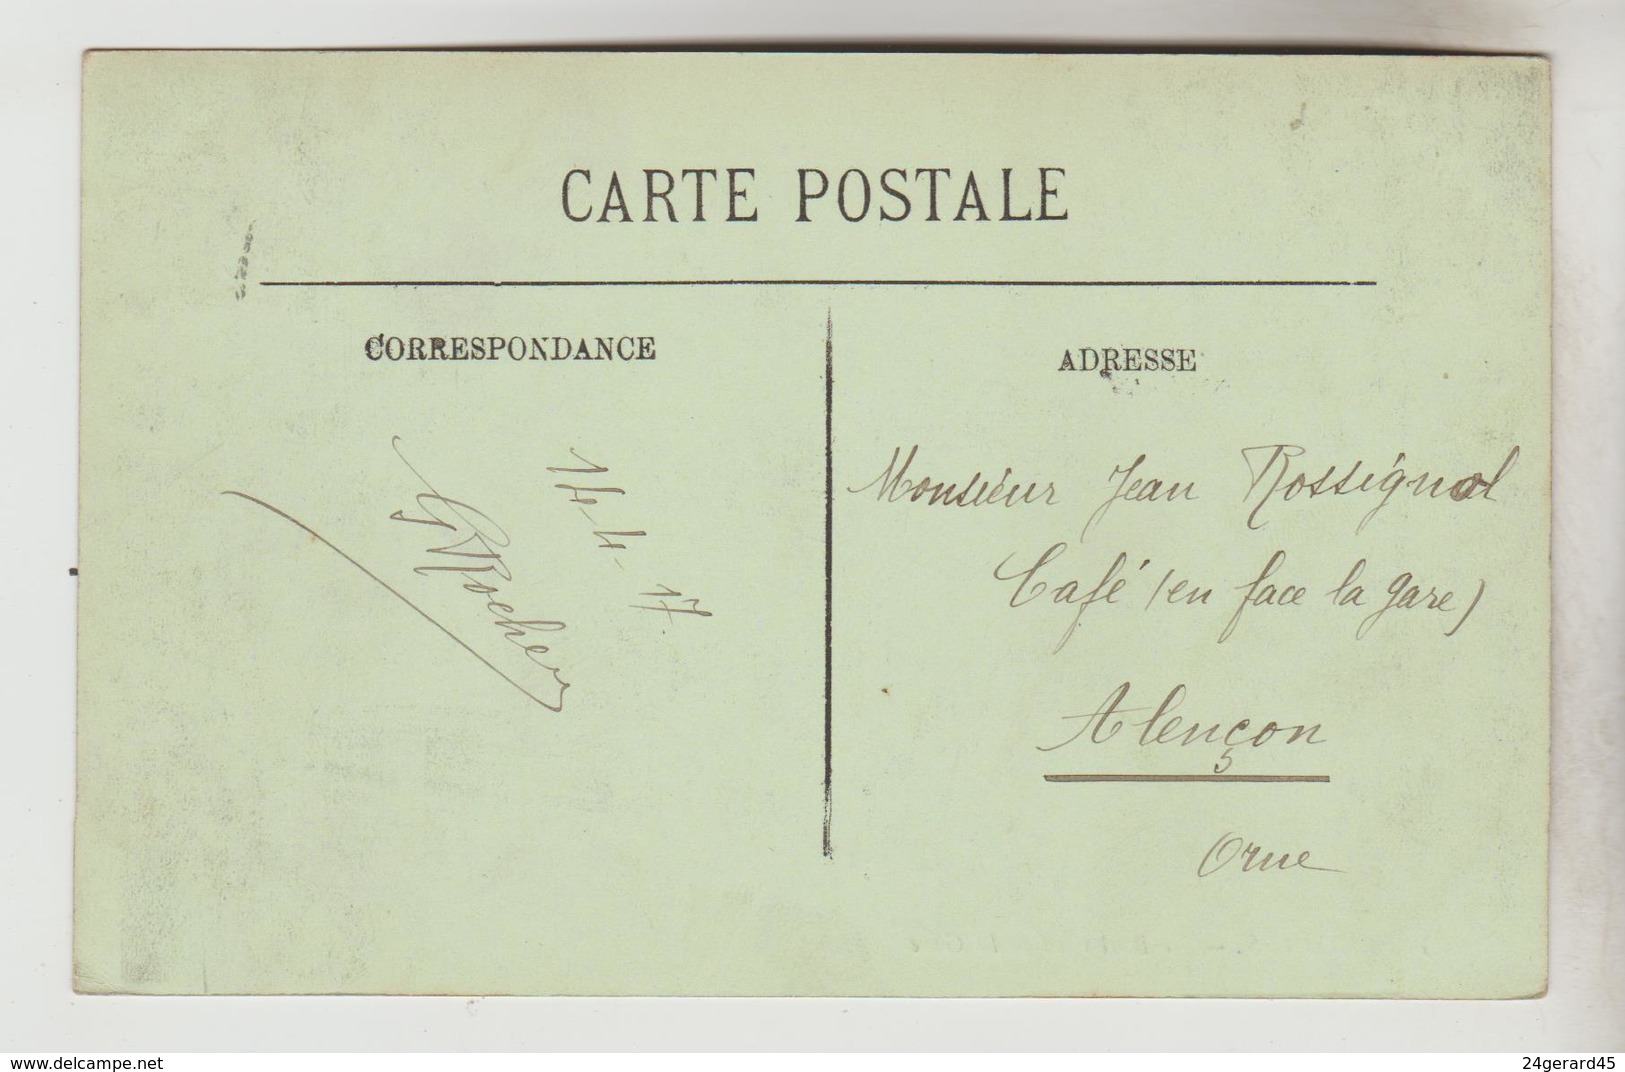 CARTE POSTALE
CORRESPONDANCE
14-4-17.
GRocher
ADRESSE
Monsieur Jean Rossignol
Café (en face la gare)
Alençon
Orne
www.delcampe.net
24gerard45